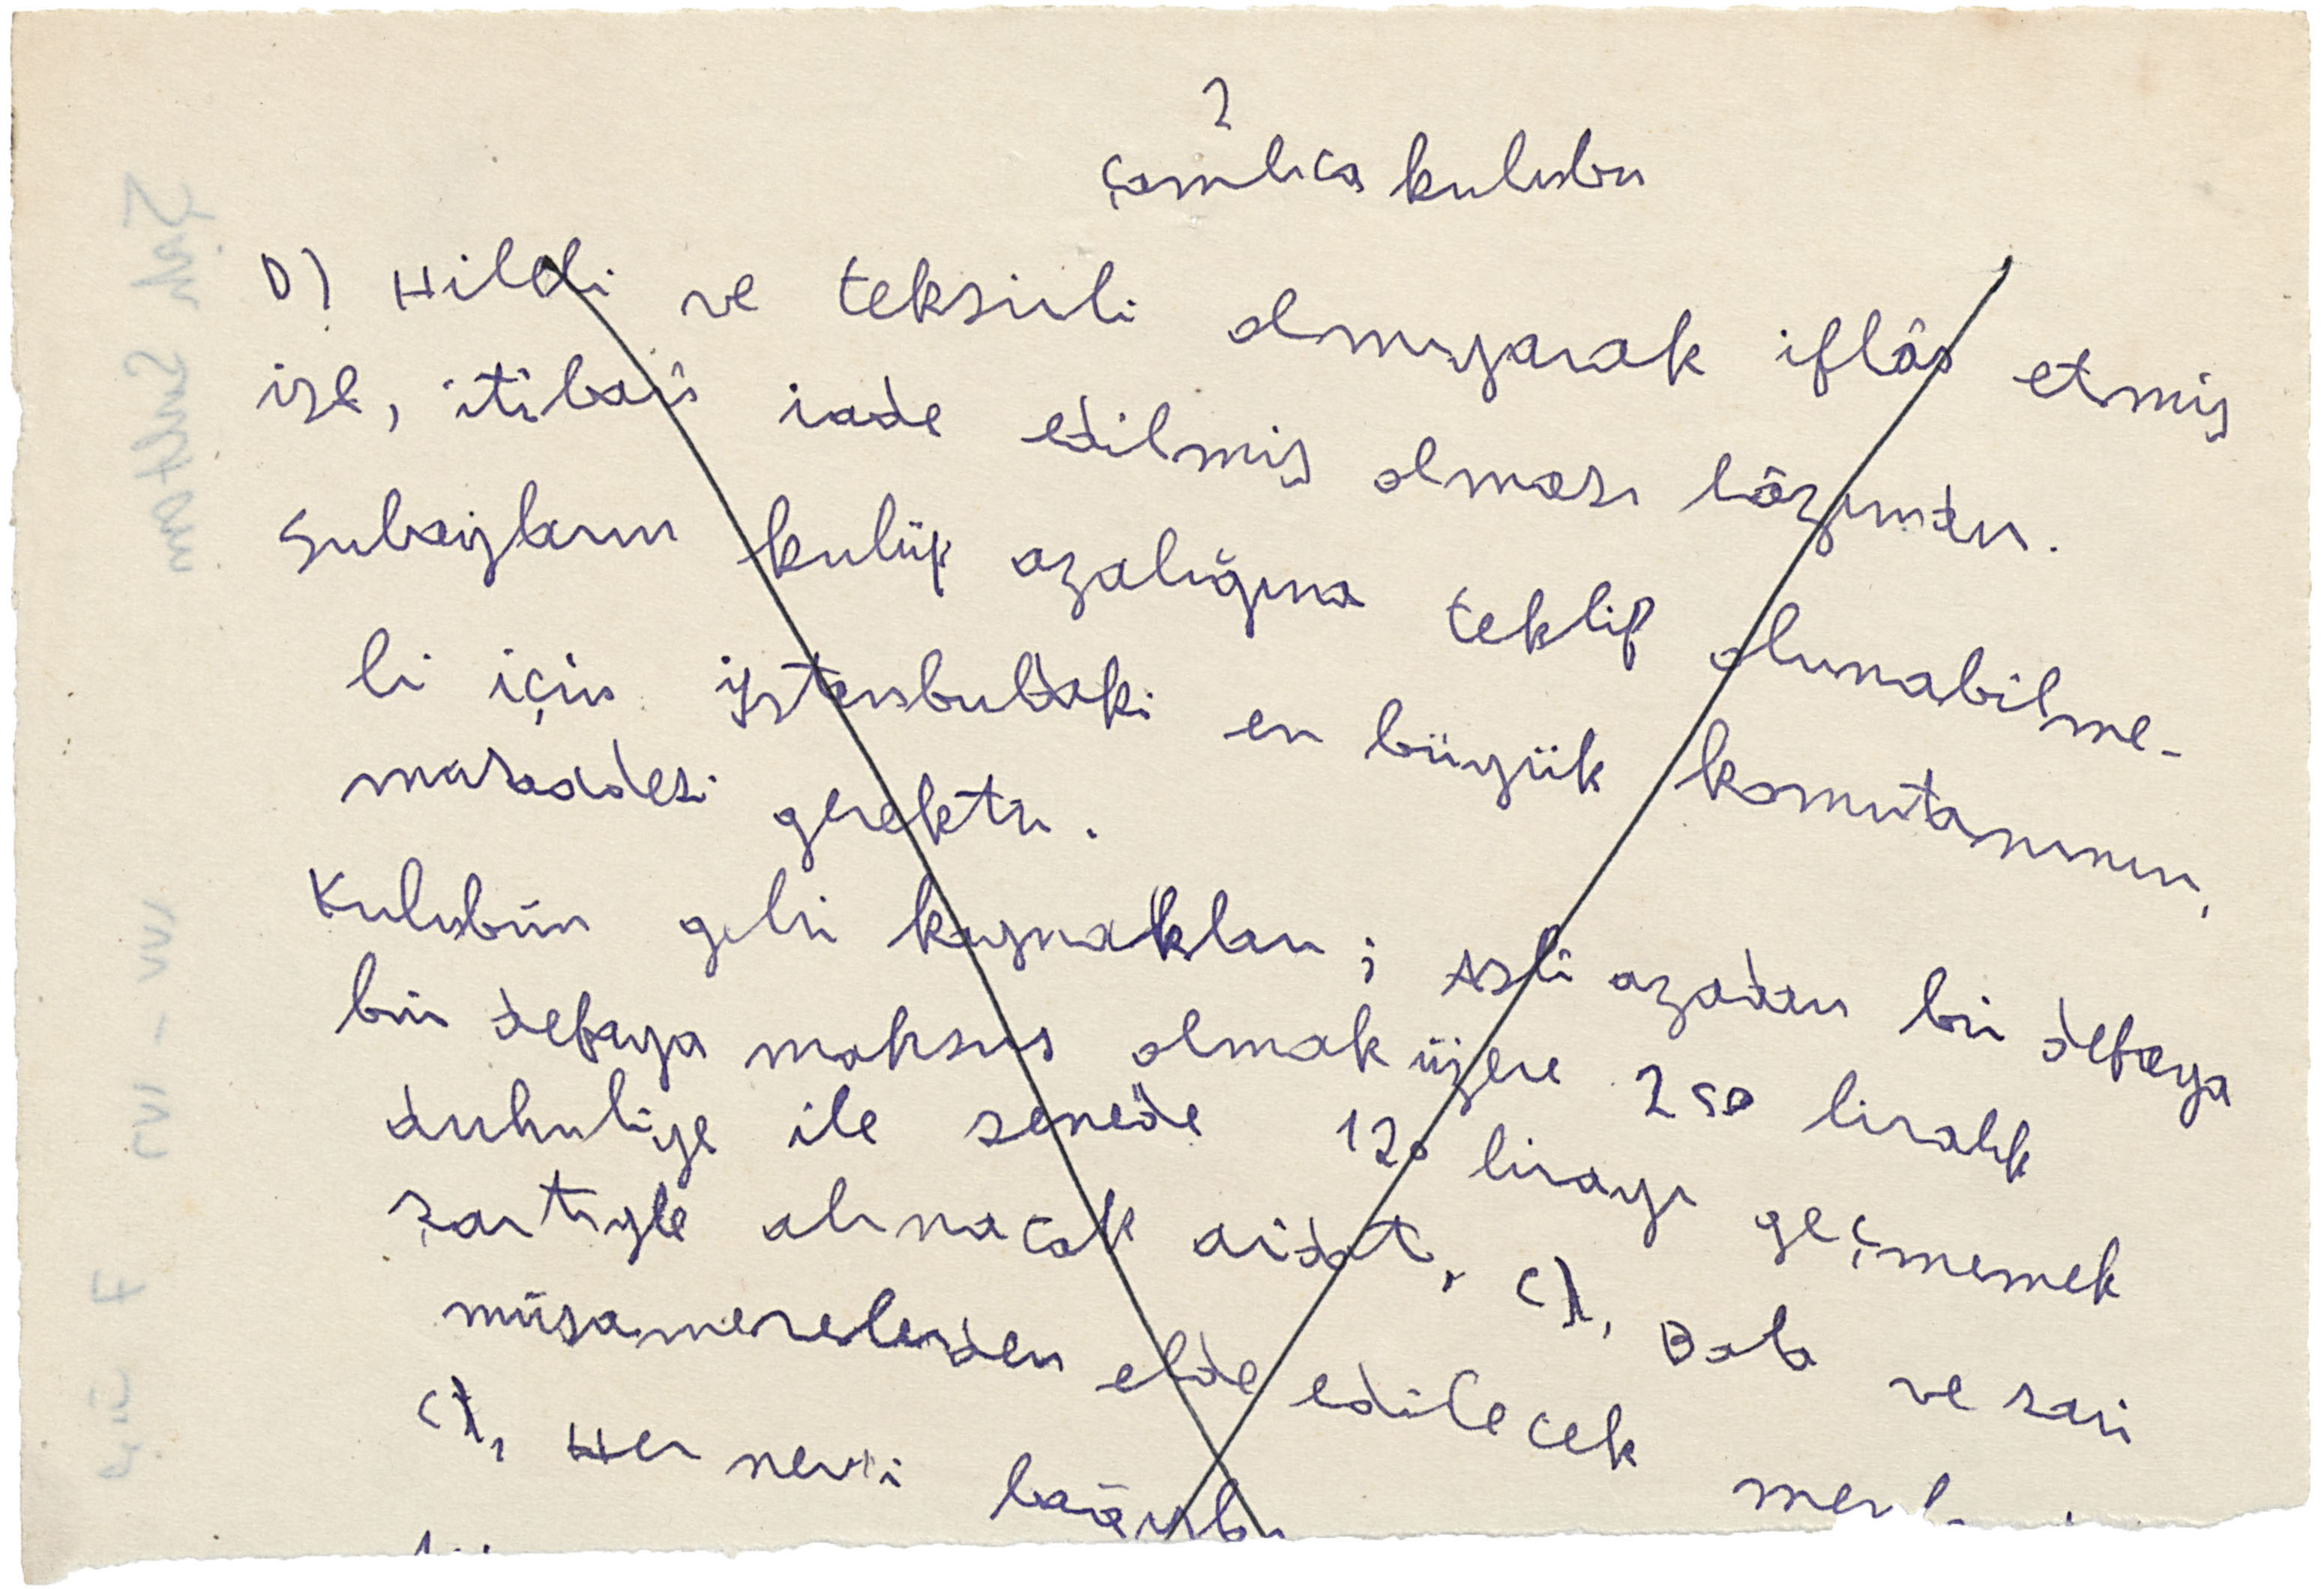 2
Çamlıca kulubu
D) Hileli ve taksirli olmıyarak iflâs etmiş
ise, itibarı iade edilmiş olması lâzımdır.
Subayların kulüp azalığına teklif olunabilme-
li için İstanbuldaki en büyük komutanının,
masaadesi gerektir.
Kulubün gelir kaynakları; Asli azadan bir defaya
bir defaya mahsus olmak üzere 250 liralık
duhuliye ile senede 120 lirayı geçmemek
şartiyle alınacak aidat, C), Balo ve sair
müsamerelerden elde edilecek
C), Her nevi